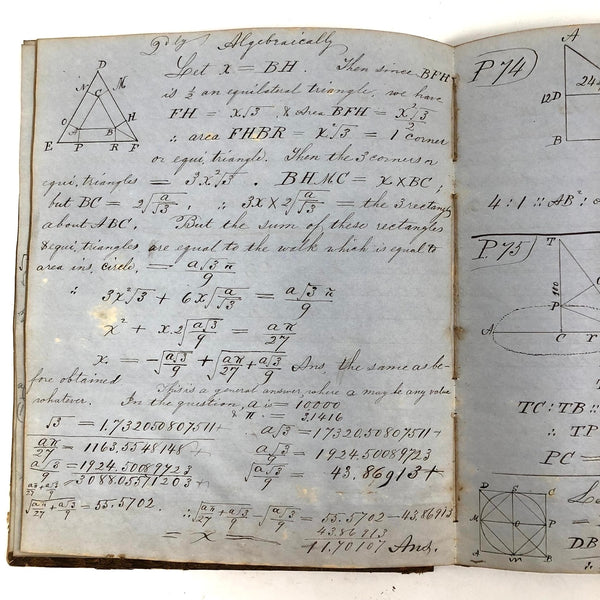 2dly Algebraically
Let x = BH. Then since BFH
is ½ an equilateral triangle, we have
FH = x√3 & Area BFH = x²√3/2
∴ area FHBR = x²√3 = 1 corner
or equi. triangle. Then the 3 corners or
equi. triangles = 3x²√3. BHMC = x×BC;
but BC = 2√(a/√3), ∴ 3x×2√(a/√3) = the 3 rectangles
about ABC. But the sum of these rectangles
& equi. triangles are equal to the walk which is equal to
area ins. circle, = a√3 π/9
∴ 3x²√3 + 6x√(a/√3) = a√3 π/9
x² + x.2√(a√3/9) = aπ/27
x = -√(a√3/9) + √(aπ/27 + a√3/9) Ans, the same as be-
fore obtained
This is a general answer, where a may be any value
whatever. In the question, a is = 10,000
& π = 3,1416
√3 = 1.732050807511+ a√3 = 17320.50807511+
aπ/27 = 1163.5548148+ a√3/9 = 1924.50089723
a√3/9 = 1924.50089723 √(a√3/9) = 43.86913+
aπ/27 + a√3/9 = 3088.05571203+
√(aπ/27 + a√3/9) = 55.5702. ∴ √(aπ/27 + a√3/9) - √(a√3/9) = 55.5702 - 43.86913
43.86913
= x = 11.70107 Ans.
D
N C M
O A B H
E P R F
P 74
A
24
12D
B
4 : 1 :: AB² :
P. 75
T
100
P
A C T
TC : TB ::
∴ TP
PC =
D E C
M O P
A m B
Le
=
DB
∴